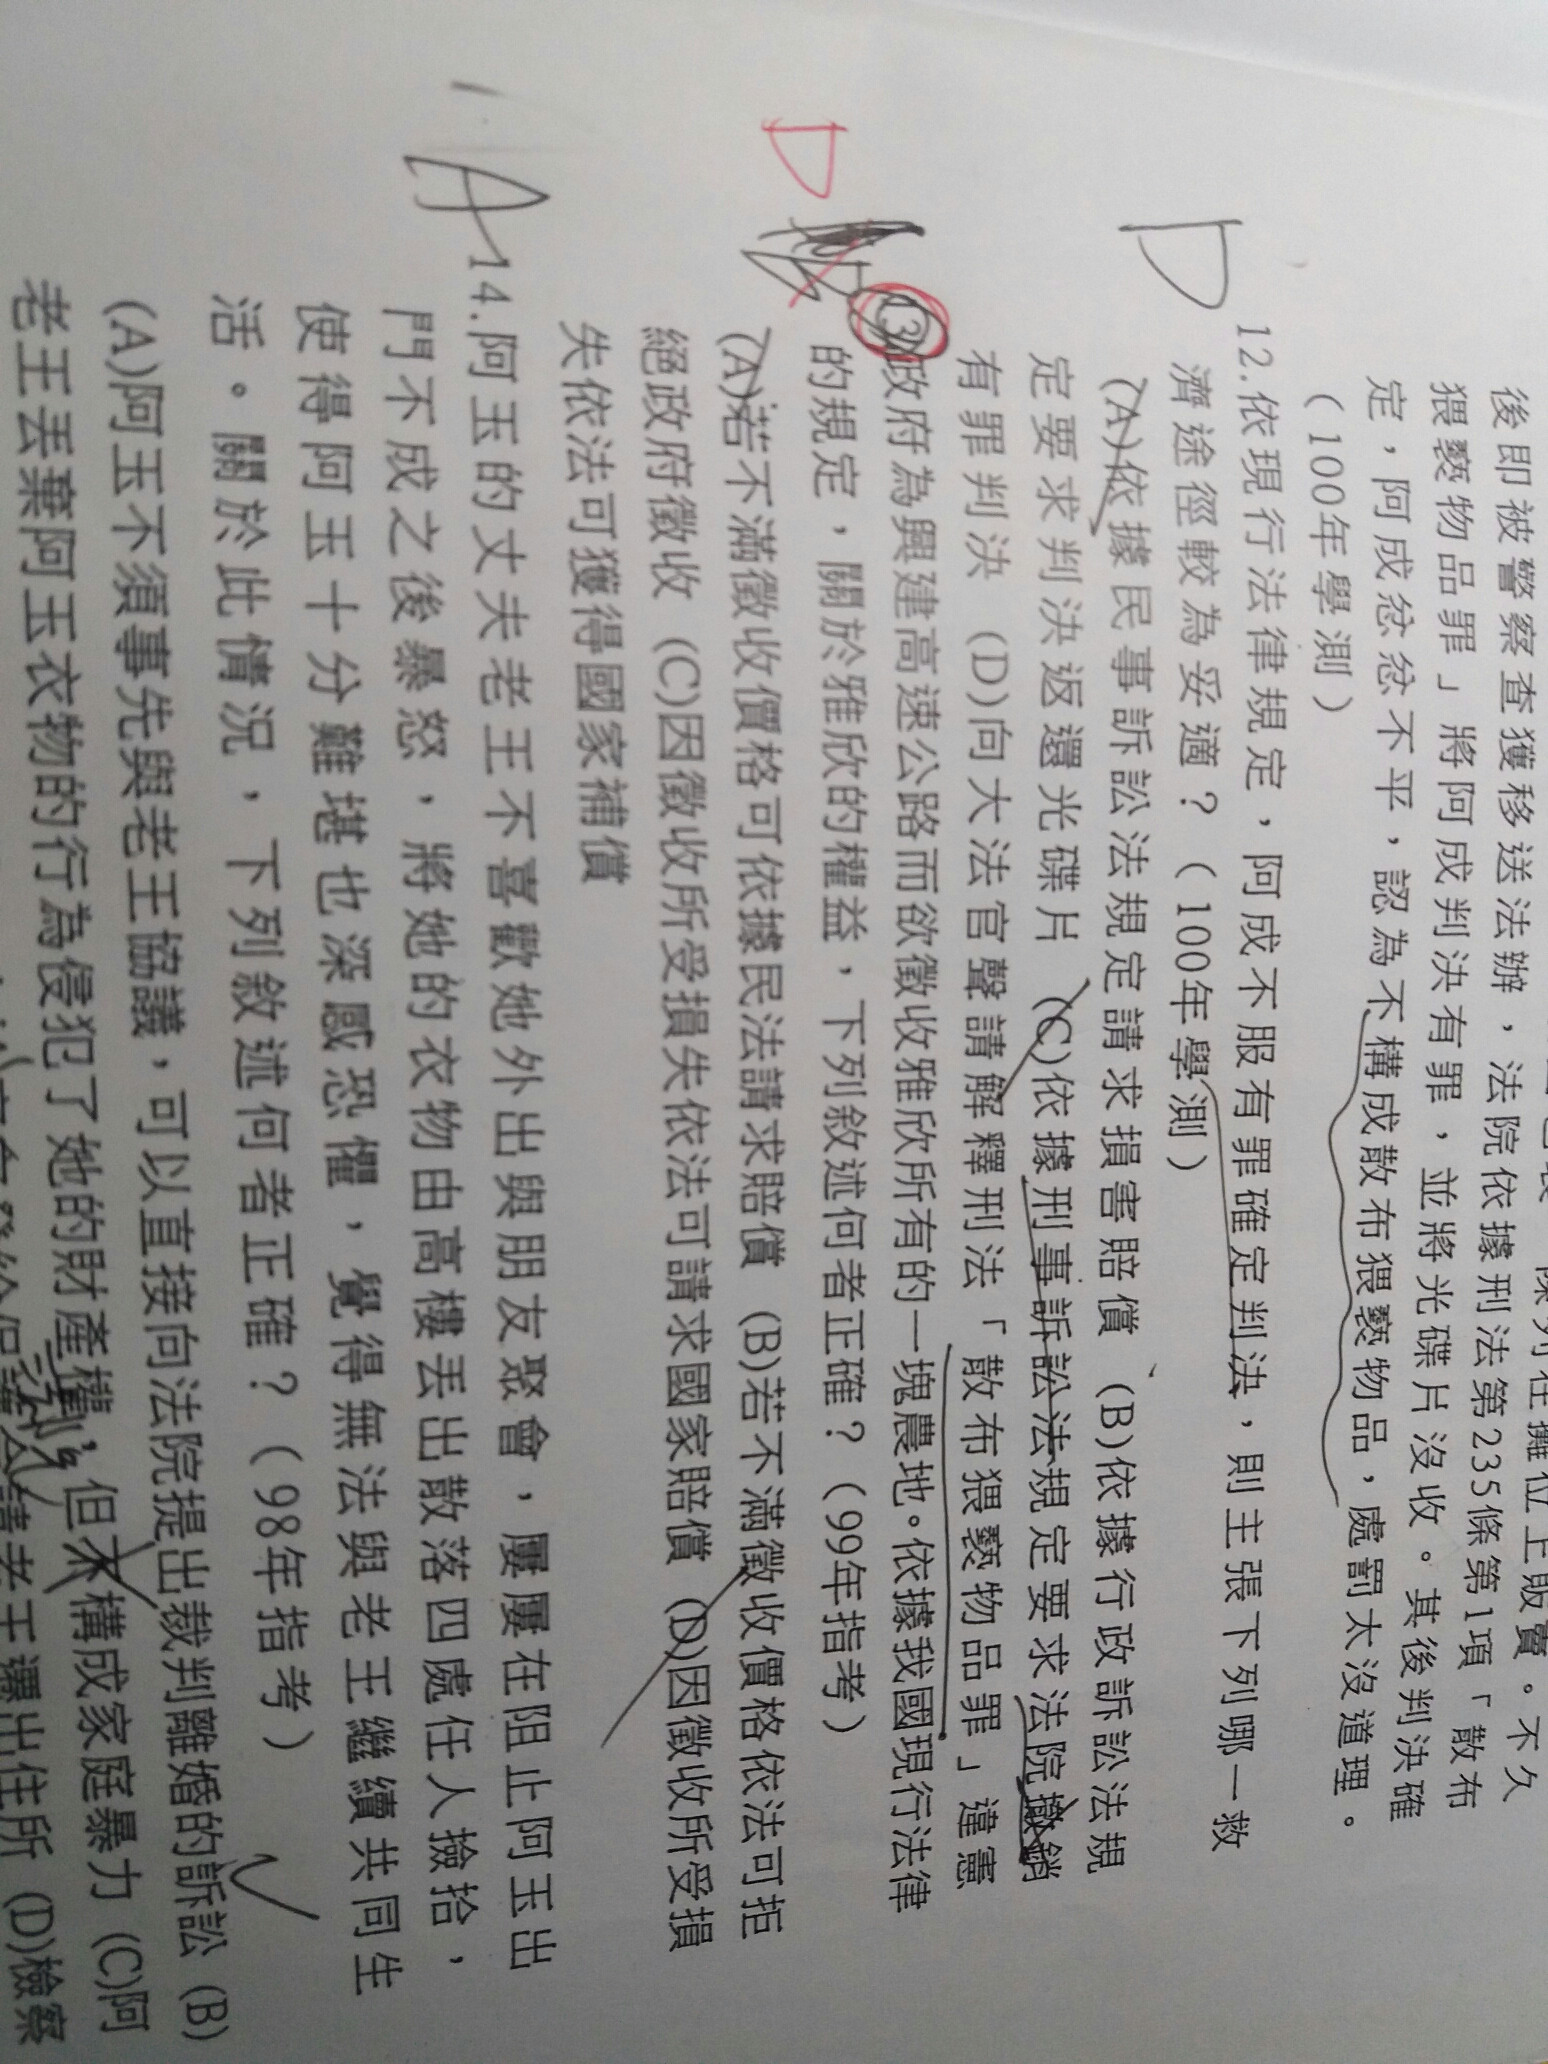 後即被警察查獲移送法辦，法院依據刑法第235條第1項「散布
猥褻物品罪」將阿成判決有罪，並將光碟片沒收。其後判決確
定，阿成忿忿不平，認為不構成散布猥褻物品，處罰太沒道理。
（100年學測）
D
12.依現行法律規定，阿成不服有罪確定判決，則主張下列哪一救
濟途徑較為妥適？（100年學測）
(A)依據民事訴訟法規定請求損害賠償 (B)依據行政訴訟法規
定要求判決返還光碟片 (C)依據刑事訴訟法規定要求法院撤銷
有罪判決 (D)向大法官聲請解釋刑法「散布猥褻物品罪」違憲
D
13政府為興建高速公路而欲徵收雅欣所有的一塊農地。依據我國現行法律
的規定，關於雅欣的權益，下列敘述何者正確？（99年指考）
(A)若不滿徵收價格可依據民法請求賠償 (B)若不滿徵收價格依法可拒
絕政府徵收 (C)因徵收所受損失依法可請求國家賠償 (D)因徵收所受損
失依法可獲得國家補償
A
14.阿玉的丈夫老王不喜歡她外出與朋友聚會，屢屢在阻止阿玉出
門不成之後暴怒，將她的衣物由高樓丟出散落四處任人撿拾，
使得阿玉十分難堪也深感恐懼，覺得無法與老王繼續共同生
活。關於此情況，下列敘述何者正確？（98年指考）
(A)阿玉不須事先與老王協議，可以直接向法院提出裁判離婚的訴訟 (B)
老王丟棄阿玉衣物的行為侵犯了她的財產權，但未構成家庭暴力 (C)阿
老王遷出住所 (D)檢察